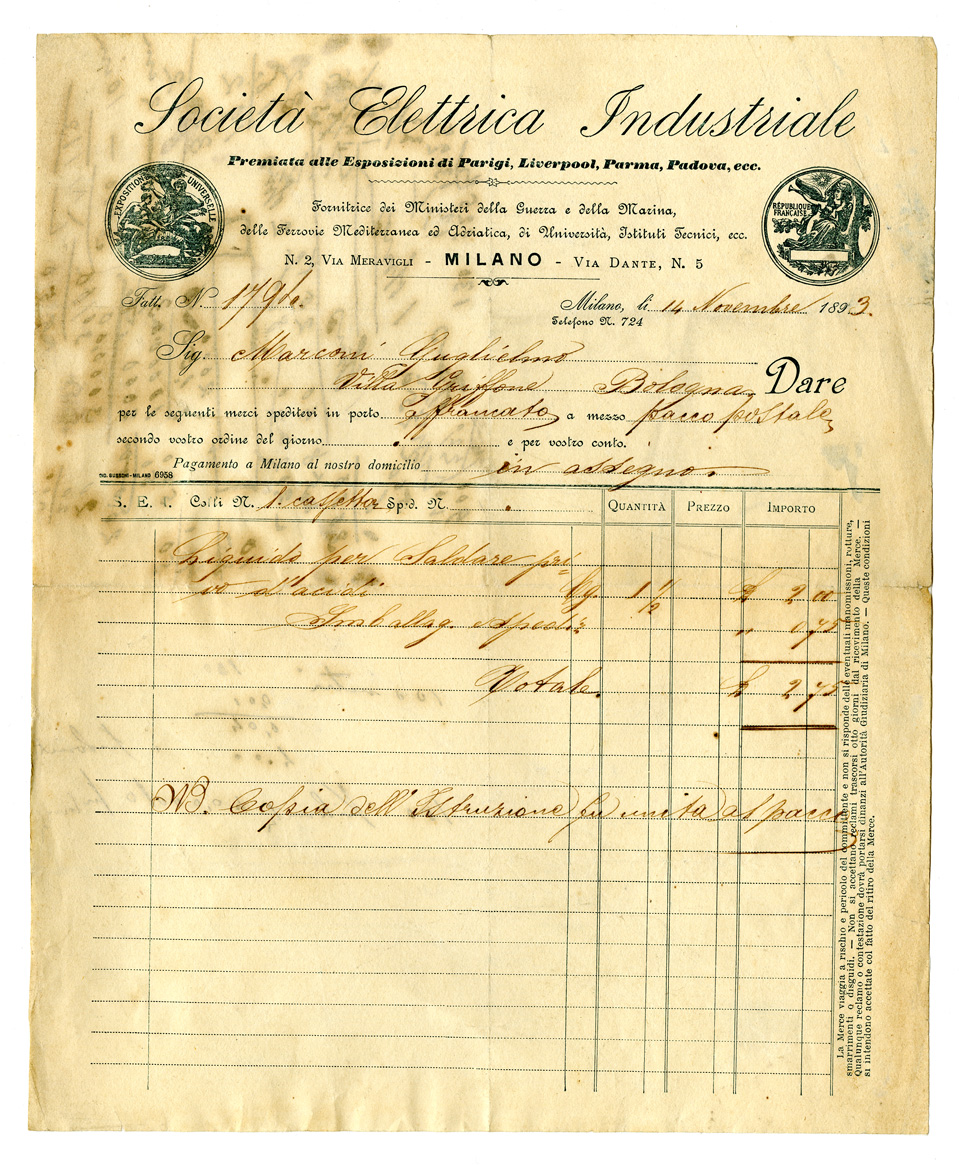 Società Elettrica Industriale
Premiata alle Esposizioni di Parigi, Liverpool, Parma, Padova, ecc.
EXPOSITION UNIVERSELLE
RÉPUBLIQUE FRANÇAISE
Fornitrice dei Ministeri della Guerra e della Marina,
delle Ferrovie Mediterranea ed Adriatica, di Università, Istituti Tecnici, ecc.
N. 2, Via Meravigli - MILANO - Via Dante, N. 5
Fatt. N.
Milano, li 14 Novembre 1893.
Telefono N. 724
Sig. Marconi Guglielmo
Villa Griffone Bologna Dare
per le seguenti merci speditevi in porto affrancato a mezzo pacco postale
secondo vostro ordine del giorno e per vostro conto.
Pagamento a Milano al nostro domicilio in assegno
TIP. GUSSONI - MILANO 6958
S. E. I. Colli N. 1. cassetta Sped. N.
QUANTITÀ PREZZO IMPORTO
Liquido per saldare pri=
vo d'acidi Kg 1 1/2 £ 2 00
Imballag. e spediz. " 0 75
Totale. £ 2 75
NB. Copia dell'Istruzione fu unita al pacco
La Merce viaggia a rischio e pericolo del committente e non si risponde delle eventuali manomissioni, rotture,
smarrimenti o disguidi. — Non si accettano reclami trascorsi otto giorni dal ricevimento della Merce. —
Qualunque reclamo o contestazione dovrà portarsi dinanzi all'Autorità Giudiziaria di Milano. — Queste condizioni
si intendono accettate col fatto del ritiro della Merce.